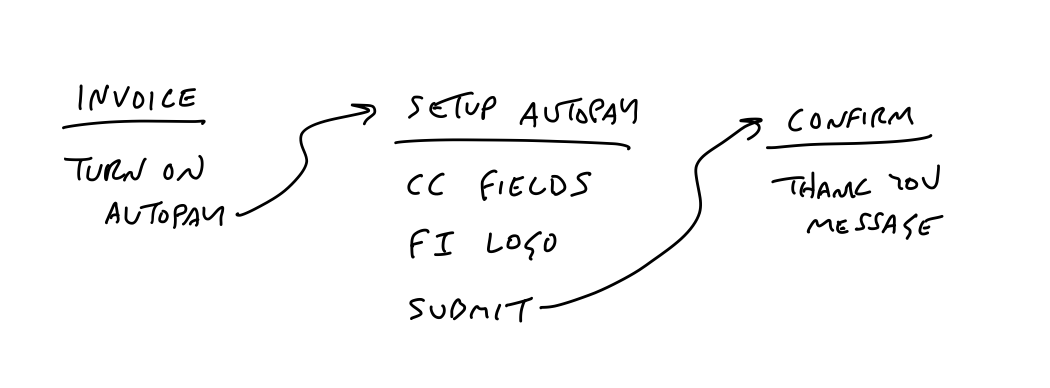 INVOICE
TURN ON
AUTOPAY
SETUP AUTOPAY
CC FIELDS
FI LOGO
SUBMIT
CONFIRM
THANK YOU
MESSAGE